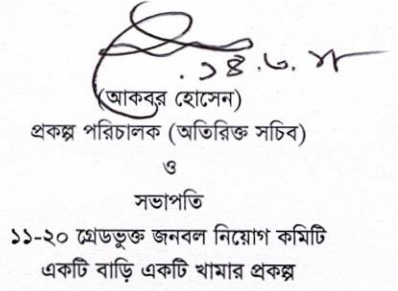 (আকবর হোসেন)
প্রকল্প পরিচালক (অতিরিক্ত সচিব)
ও
সভাপতি
১১-২০ গ্রেডভুক্ত জনবল নিয়োগ কমিটি
একটি বাড়ি একটি খামার প্রকল্প